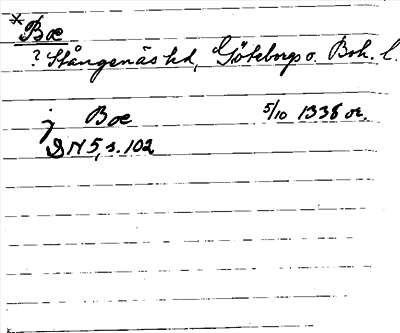 * Boe
? Stångenäs hd, Göteborgs o. Boh. l.
j Boe 5/10 1338 or.
DN 5, s. 102